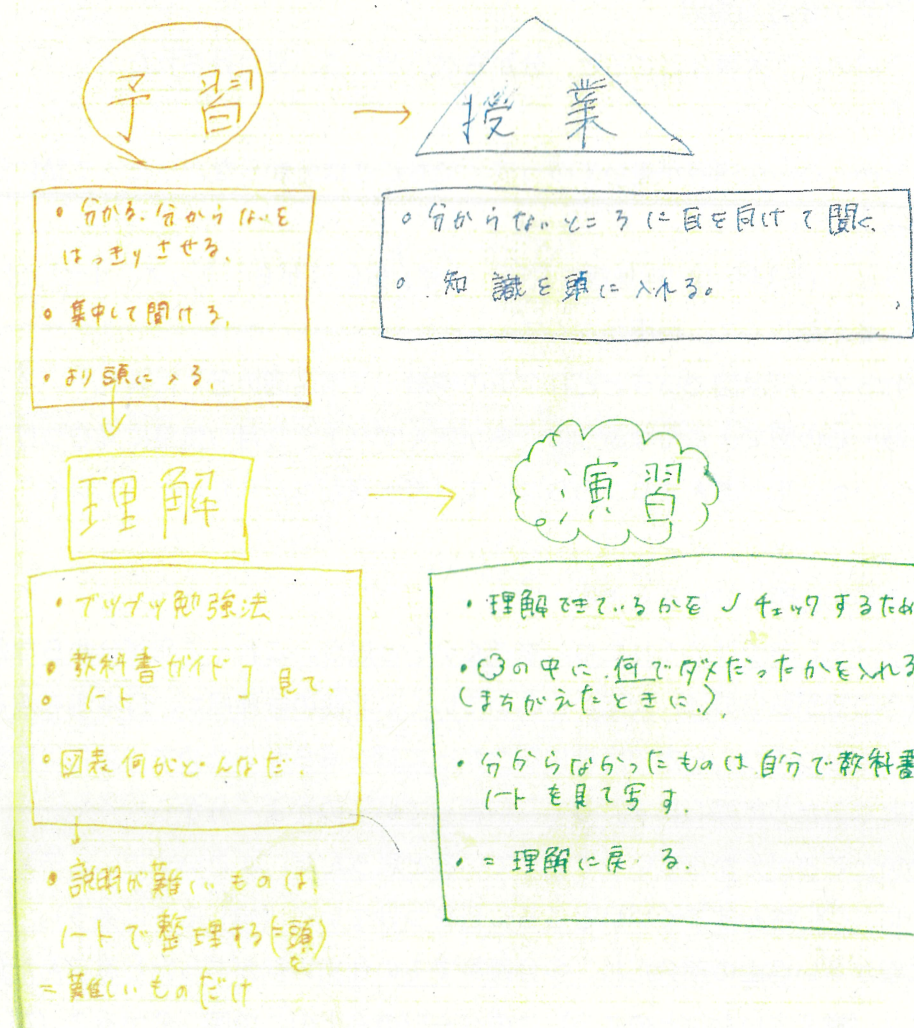 予習
→
授業
・分かる、分からないを
はっきりさせる。
・集中して聞ける。
・より頭に入る。
・分からないところに目を向けて聞く。
・知識を頭に入れる。
↓
理解
→
演習
・ブツブツ勉強法
・教科書ガイド
・ノート ] 見て、
・図表何がどんなだ。
↓
・説明が難しいものは
ノートで整理する(頭を)
=難しいものだけ
・理解できているかを✓チェックするため
・の中に、何でダメだったかを入れる
(まちがえたときに。)。
・分からなかったものは、自分で教科書
ノートを見て写す
・=理解に戻る。